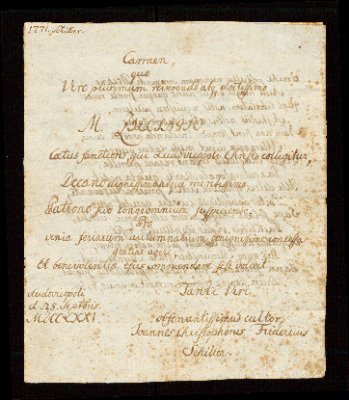 1771. Schiller.
Carmen,
quo
Viro plurimum reverendo atq doctissimo
M. ZILLING
Coetus sanctioris qui Ludovicopoli Christo colligitur,
Decano dignissimo atque meritissimo
Patrono suo longe omnium suspiciendo
Pro
venia feriarum autumnalium benignissime concessa
gratias agit,
et benevolentiae ejus commendare sese voluit
Tanti Viri
Ludovicopoli
d. 28. Septbris.
MDCCLXXI.
observantissimus cultor,
Joannes Christophorus Fridericus
Schiller.